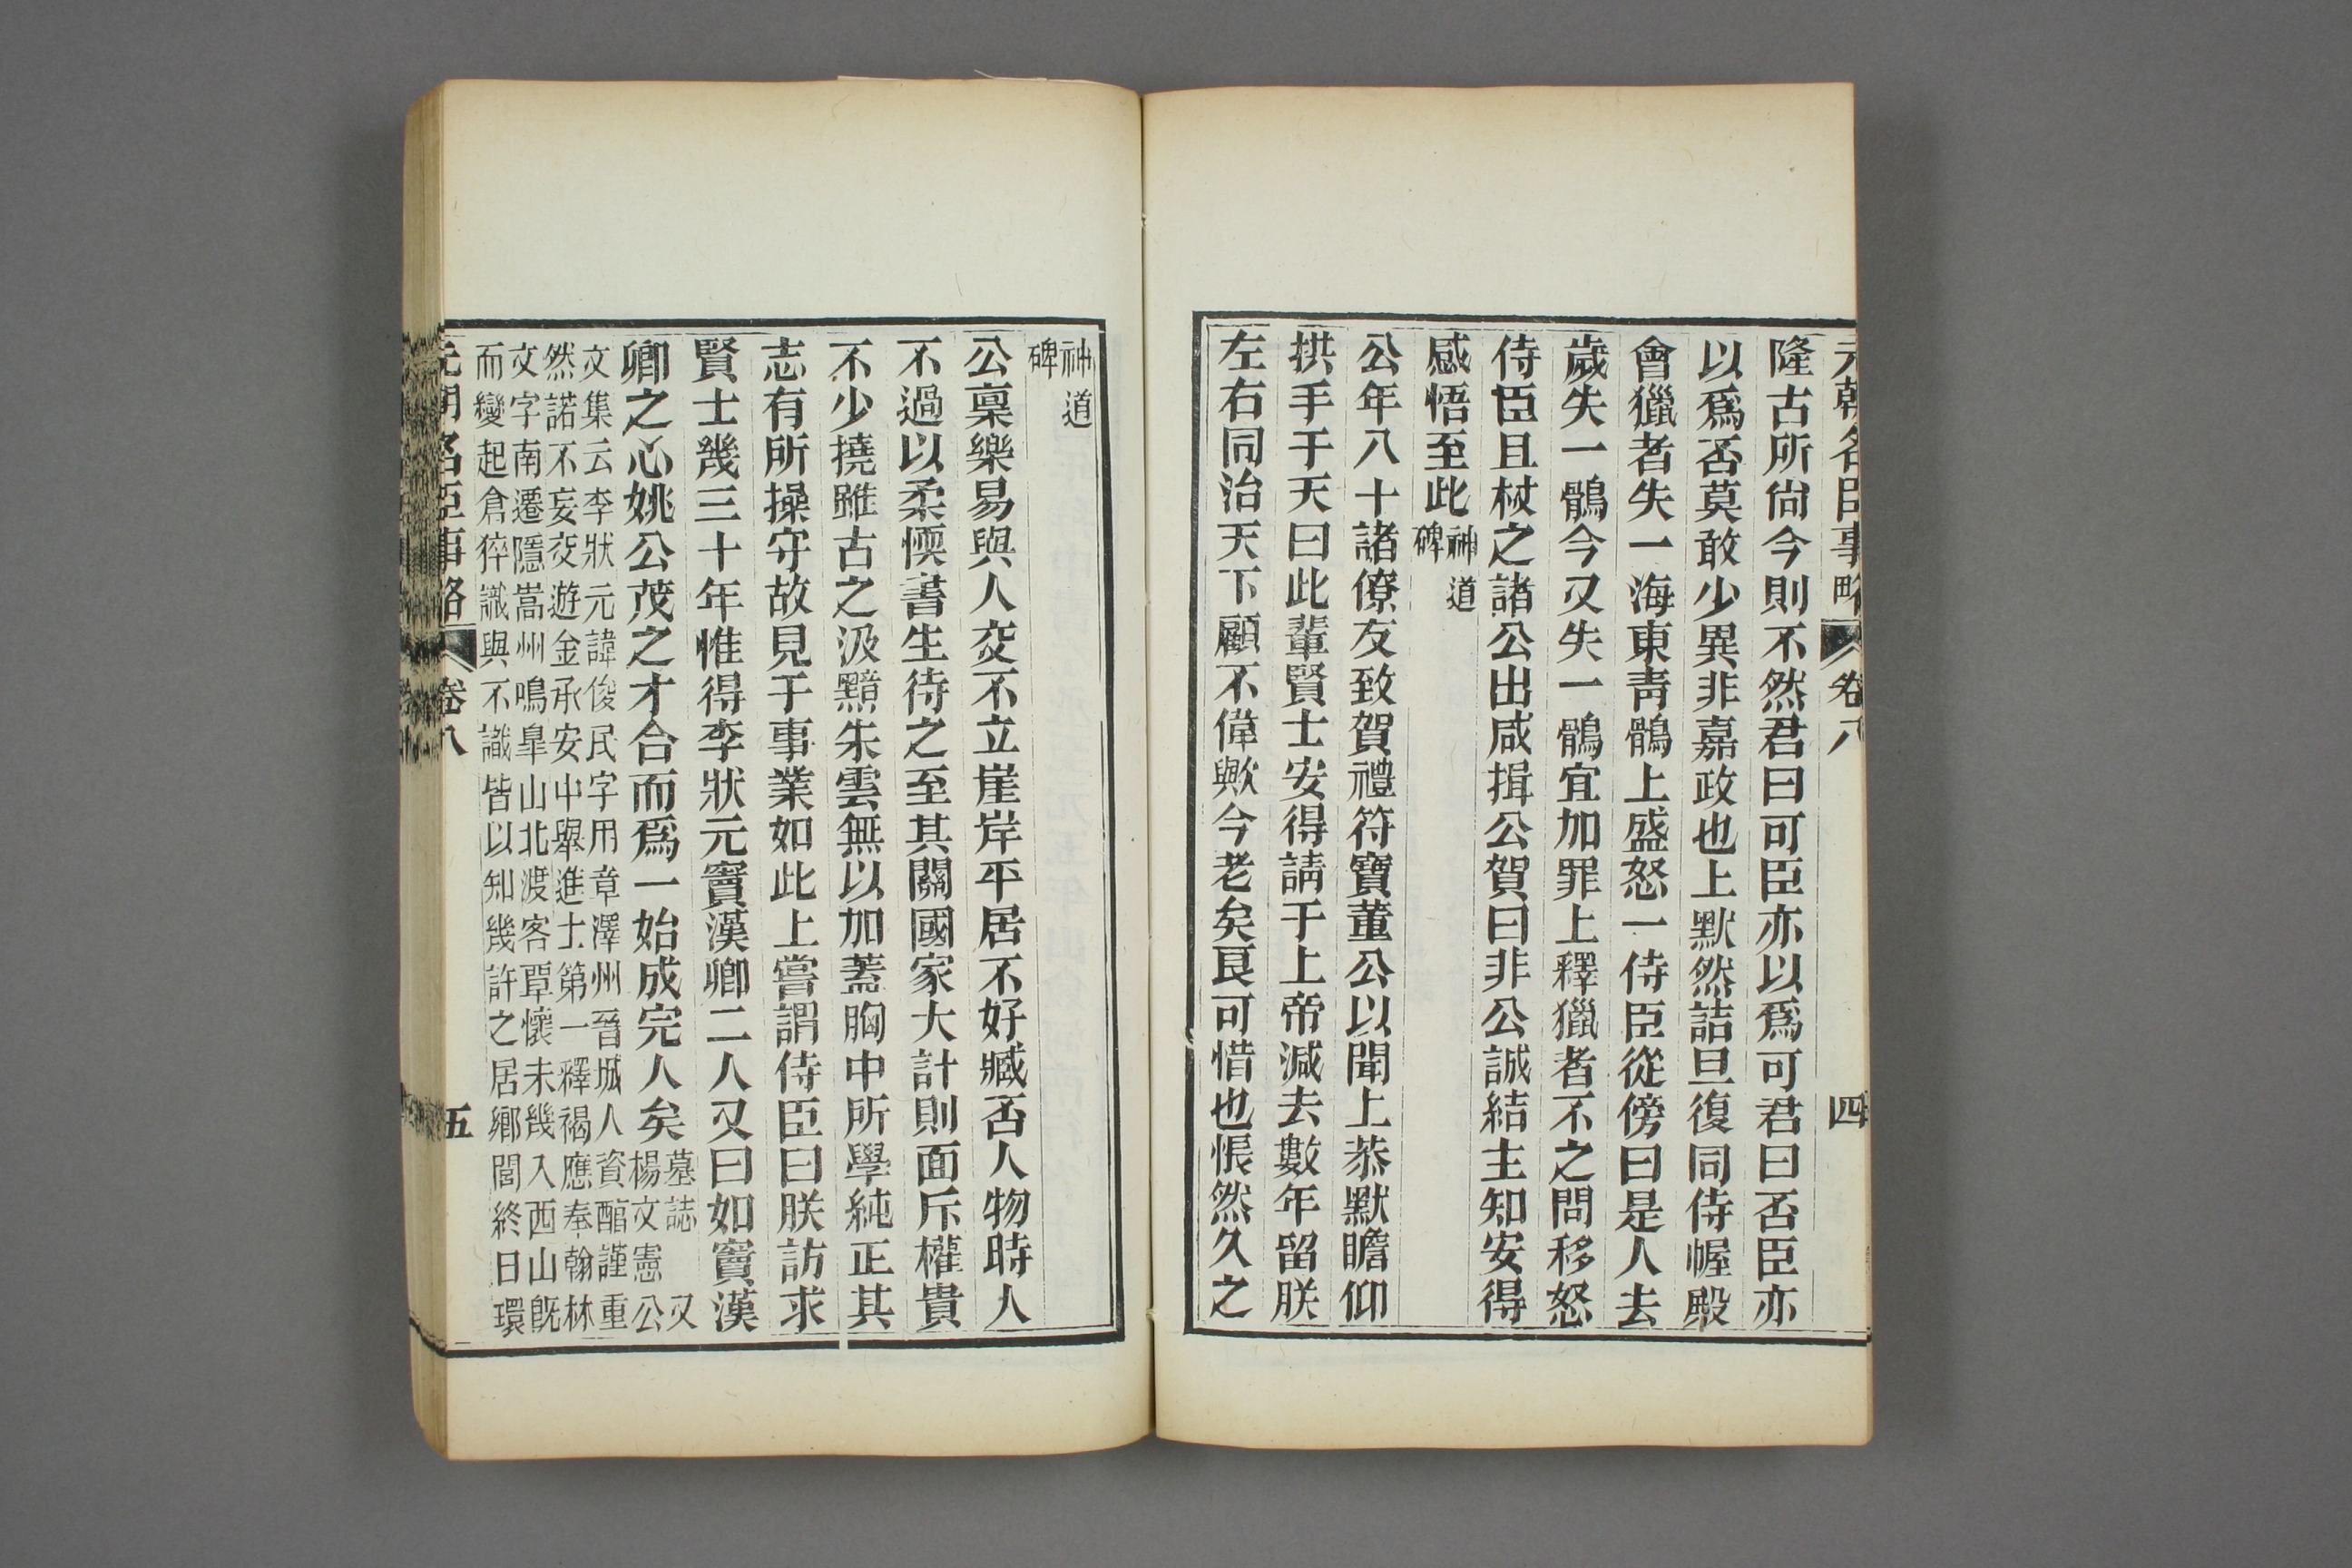 元朝名臣事略 卷八 四
隆古所尙今則不然君曰可臣亦以爲可君曰否臣亦
以爲否莫敢少異非嘉政也上默然詰旦復同侍幄殿
會獵者失一海東靑鶻上盛怒一侍臣從傍曰是人去
歲失一鶻今又失一鶻宜加罪上釋獵者不之問移怒
侍臣且杖之諸公出咸揖公賀曰非公誠結主知安得
感悟至此神道碑
公年八十諸僚友致賀禮符寶董公以聞上恭默瞻仰
拱手于天曰此輩賢士安得請于上帝減去數年留朕
左右同治天下顧不偉歟今老矣良可惜也悵然久之
神道
碑
公稟樂易與人交不立崖岸平居不好臧否人物時人
不過以柔愞書生待之至其關國家大計則面斥權貴
不少撓雖古之汲黯朱雲無以加蓋胸中所學純正其
志有所操守故見于事業如此上嘗謂侍臣曰朕訪求
賢士幾三十年惟得李狀元竇漢卿二人又曰如竇漢
卿之心姚公茂之才合而爲一始成完人矣墓誌 又楊文憲公
文集云李狀元諱俊民字用章澤州晉城人資醞謹重
然諾不妄交遊金承安中舉進士第一釋褐應奉翰林
文字南遷隱嵩州鳴皐山北渡客覃懷未幾入西山旣
而變起倉猝識與不識皆以知幾許之居鄉閭終日環
元朝名臣事略 卷八 五